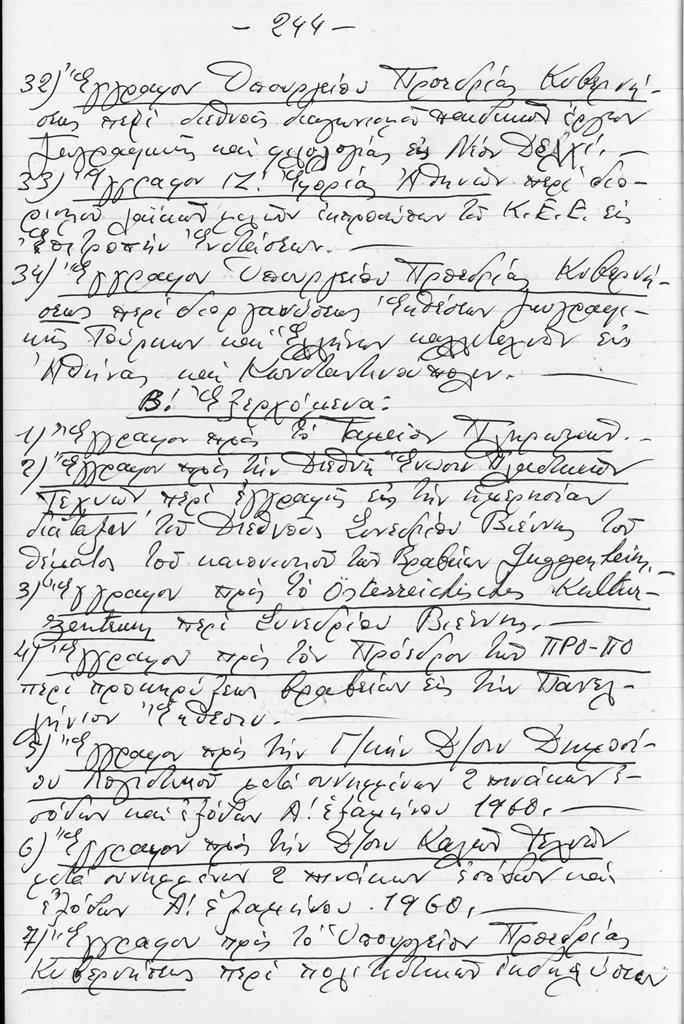 - 244 -
32) Ἔγγραφον Ὑπουργείου Προεδρίας Κυβερνή-
σεως περί διεθνοῦς διαγωνισμοῦ παιδικῶν ἔργων
ζωγραφικῆς καί φιλολογίας εἰς Νέον Δελχί. —
33) Ἔγγραφον ΙΖ! Ἐφορίας Ἀθηνῶν περί διο-
ρισμοῦ λαϊκῶν μελῶν ἐκπροσώπων τοῦ Κ.Ε.Ε. εἰς
Ἐπιτροπήν Ἐνστάσεων. —
34) Ἔγγραφον Ὑπουργείου Προεδρίας Κυβερνή-
σεως περί διοργανώσεως Ἐκθέσεων ζωγραφι-
κῆς Τούρκων καί Ἑλλήνων καλλιτεχνῶν εἰς
Ἀθήνας καί Κωνσταντινούπολιν. —
Β! Ἐξερχόμενα:
1) Ἔγγραφον πρός τό Ταμεῖον Πληρωμῶν. —
2) Ἔγγραφον πρός τήν Διεθνῆ Ἕνωσιν Πλαστικῶν
Τεχνῶν περί ἐγγραφῆς εἰς τήν ἡμερησίαν
διάταξιν τοῦ Διεθνοῦς Συνεδρίου Βιέννης τοῦ
θέματος τοῦ κανονισμοῦ τῶν Βραβείων Guggenheim.
3) Ἔγγραφον πρός τό Österreichisches Kultur-
zentrum περί Συνεδρίου Βιέννης. —
4) Ἔγγραφον πρός τόν Πρόεδρον τοῦ ΠΡΟ-ΠΟ
περί προκηρύξεως βραβείων εἰς τήν Πανελ-
λήνιον Ἔκθεσιν. —
5) Ἔγγραφον πρός τήν Γ/κήν Δ/σιν Δημοσί-
ου Λογιστικοῦ μετά συνημμένων 2 πινάκων ἐ-
σόδων καί ἐξόδων Α! ἑξαμήνου 1960. —
6) Ἔγγραφον πρός τήν Δ/σιν Καλῶν Τεχνῶν
μετά συνημμένων 2 πινάκων ἐσόδων καί
ἐξόδων Α! ἑξαμήνου 1960. —
7) Ἔγγραφον πρός τό Ὑπουργεῖον Προεδρίας
Κυβερνήσεως περί πολιτιστικῶν ἐκδηλώσεων